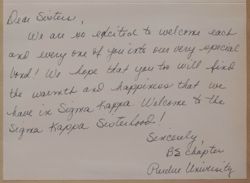 Dear Sisters,
We are so excited to welcome each
and every one of you into our very special
bond! We hope that you too will find
the warmth and happiness that we
have in Sigma Kappa Welcome to the
Sigma Kappa Sisterhood!
Sincerely,
BΣ Chapter
Purdue University